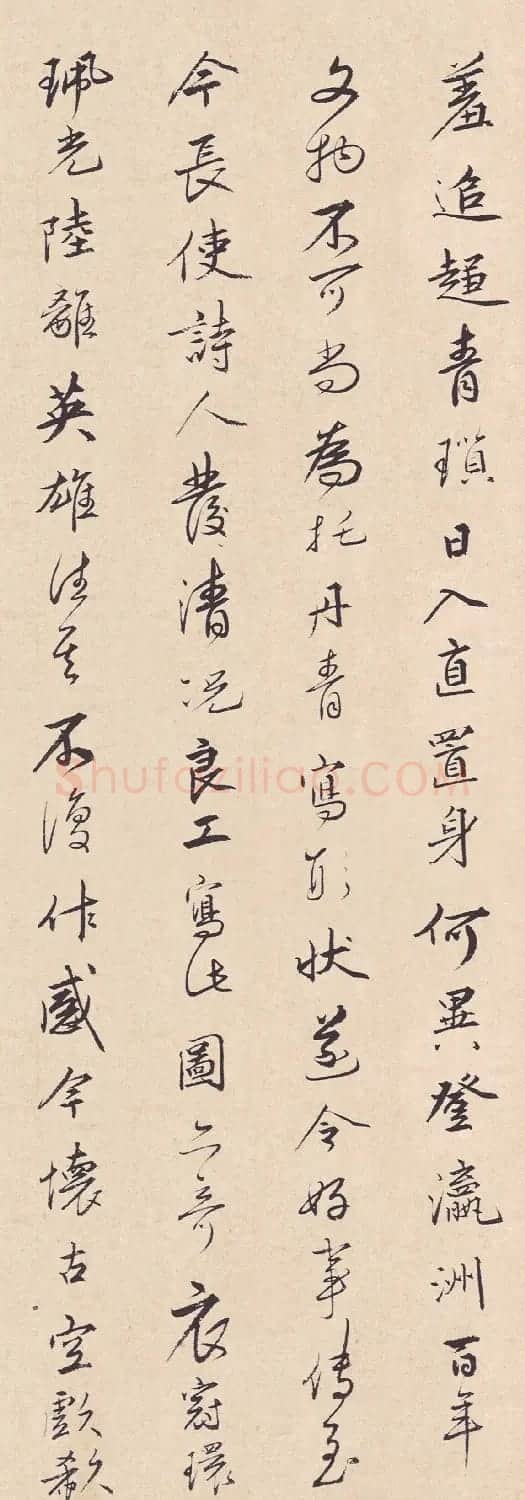 羞追趨青瑣日入直置身何異登瀛洲百年
文物不可尚為托丹青寫形状遂令好事傳至
今長使詩人發清況良工寫此圖亦奇衣冠環
珮光陸離英雄往矣不復作感今懷古空歔欷
Shufaziliao.COM